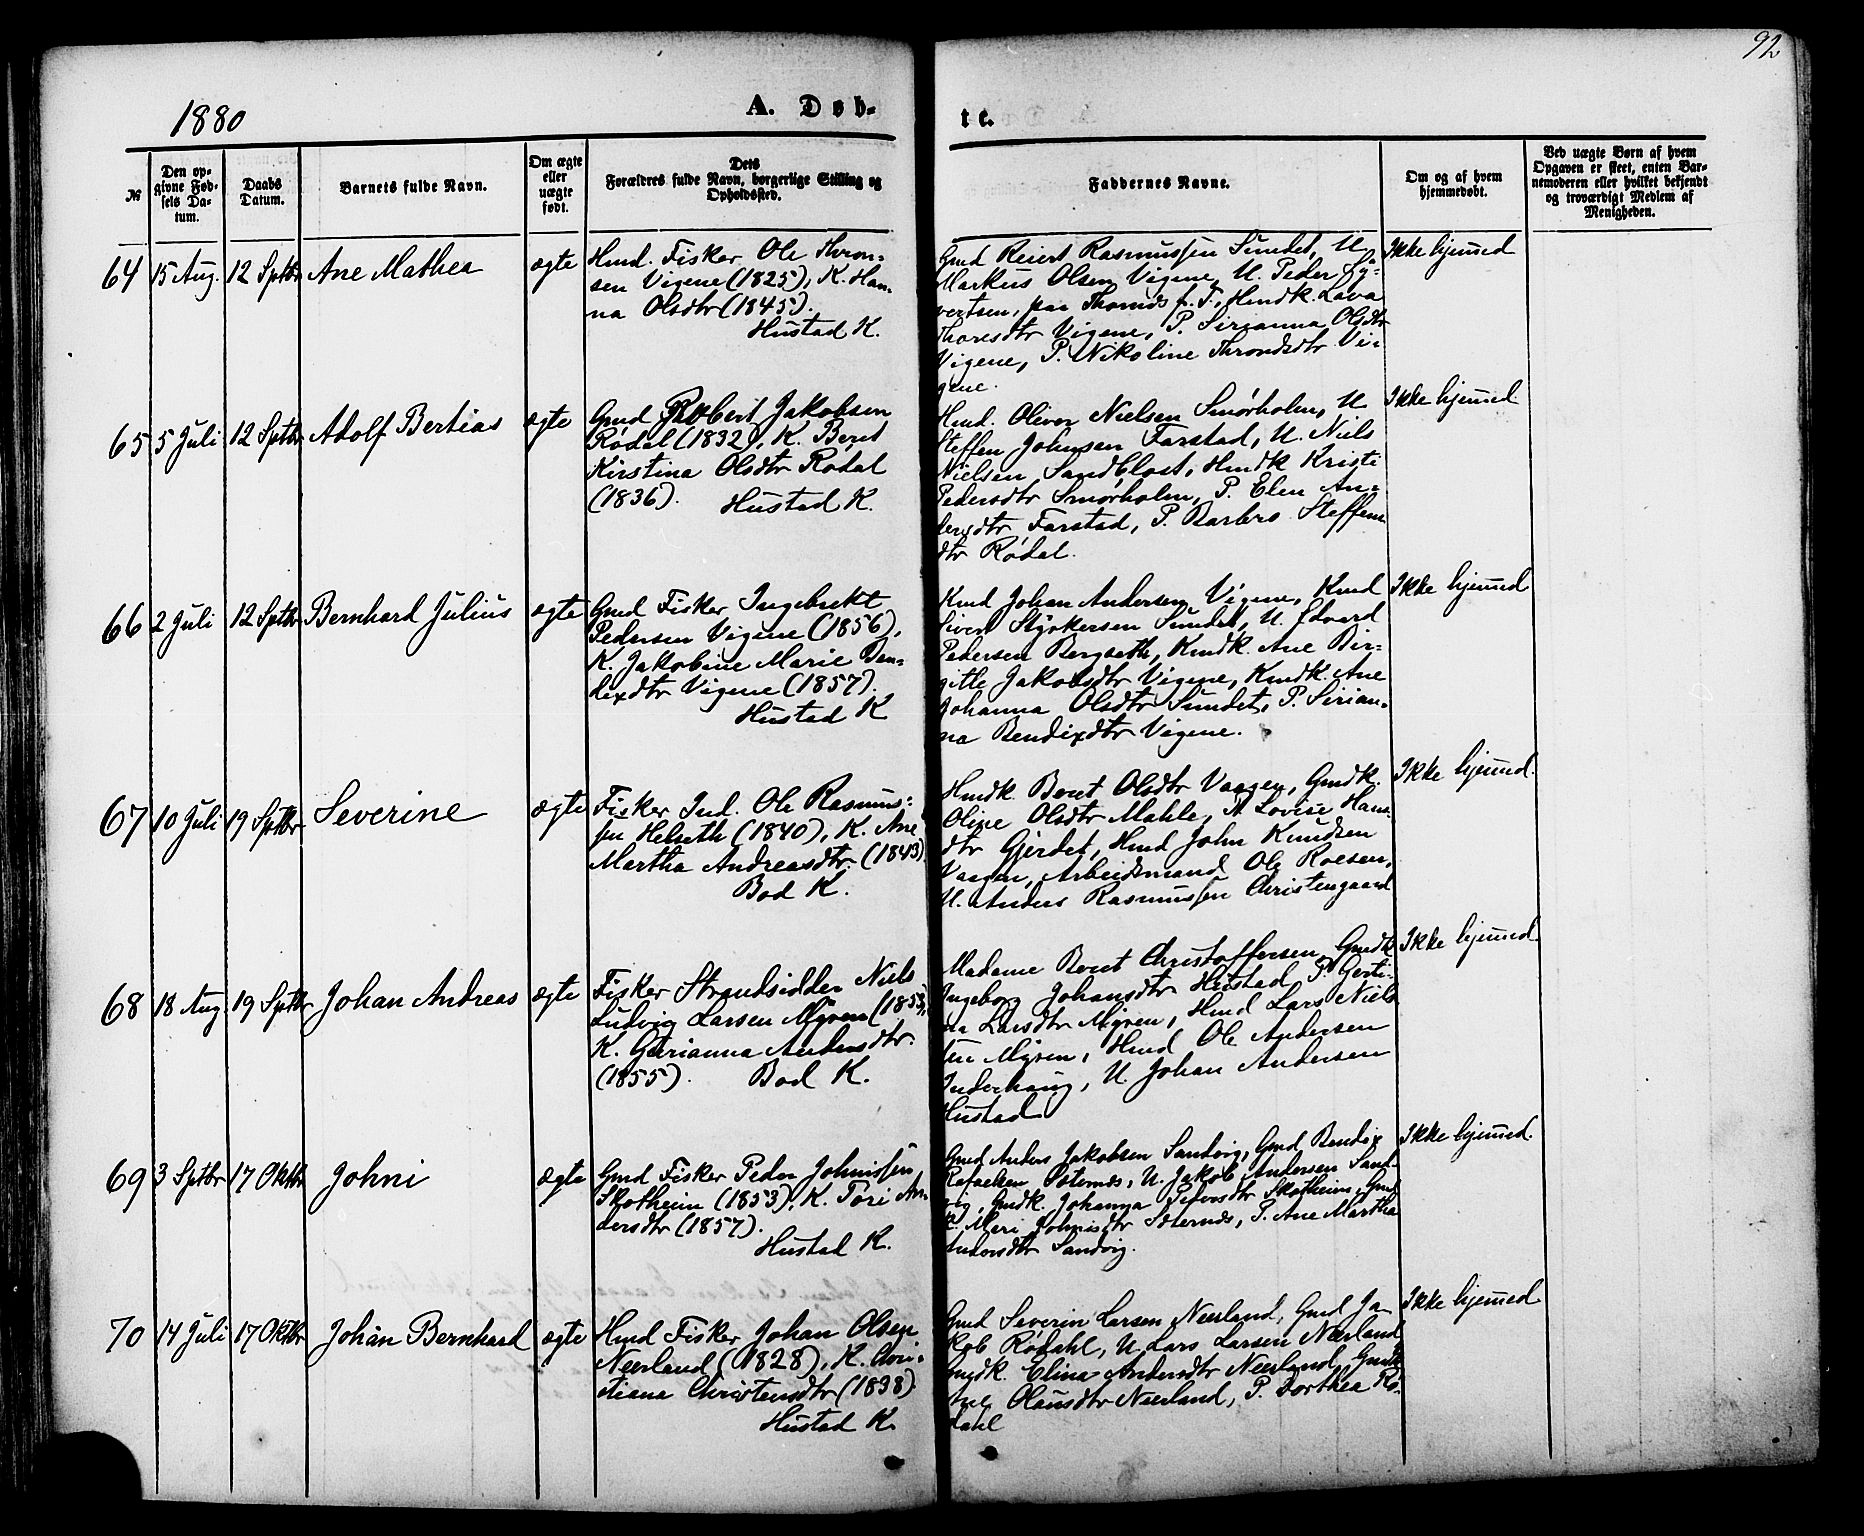 92
1880
A. Døb-
te.
№
Den op-
givne Fød-
sels Da-
tum.
Daabs
Datum.
Barnets fulde Navn.
Om ægte
eller
uægte
født.
Dets
Forældres fulde Navn, borgerlige Stilling og
Opholdssted.
Faddernes Navne.
Om og af hvem
hjemmedøbt.
Ved uægte Børn af hvem
Opgaven er skeet, enten Bar-
nemoderen eller hvilket bekjendt
og troværdigt Medlem af
Menigheden.
64 15 Aug. 12 Sptbr Ane Mathea ægte
Hmd. Fisker Ole Thron-
sen Vigene (1825), K. Han-
na Olsdtr (1845).
Hustad K.
Gmd Reiert Rasmussen Sundet, U
Markus Olsen Vigene, U. Peder Sy-
vertsen, paa f. T., Hmdk. Lava
Thoresdtr Vigene, P. Sirianna Olsdtr
Vigene, P. Nikoline Throndsdtr Vi-
gene.
Ikke hjemmed
65 5 Juli 12 Sptbr Adolf Bertias ægte
Gmd Robert Jakobsen
Rødal (1832), K. Beret
Kirstina Olsdtr Rødal
(1836). Hustad K.
Hmd. Oliver Nielsen Smørholm, U
Steffen Johnsen Farstad, U. Niels
Nielsen Sandblost, Hmdk Kristi
Pedersdtr Smørholm, P. Elen An-
dersdtr Farstad, P. Barbro Steffens
dtr Rødal.
Ikke hjemmed.
66 2 Juli 12 Sptbr Bernhard Julius ægte
Gmd Fisker Ingebrekt
Pedersen Vigene (1856),
K. Jakobine Marie Ben-
dixdtr Vigene (1857).
Hustad K
Kmd Johan Andersen Vigene, Kmd
Siver Styrkersen Sundet, U. Edvard
Pedersen Bergseth, Kmdk. Ane Bir-
gitte Jakobsdtr Vigene, Kmdk. Ane
Johanna Olsdtr Sundet, P. Sirian-
na Bendixdtr Vigene.
Ikke hjemmed
67 10 Juli 19 Sptbr Severine ægte
Fisker Ind. Ole Rasmus-
sen Helseth (1840), K. Ane
Martha Andreasdtr (1843)
Bod K.
Hmdk. Beret Olsdtr Vaagen, Gmdk.
Oline Olsdtr Mahle, P. Lovise Hans
dtr Gjerdet, Hmd John Knudsen
Vaagen, Arbeidsmand Ole Roesen,
U. Anders Rasmussen Christengaard
Ikke hjemmed.
68 18 Aug 19 Sptbr Johan Andreas ægte
Fisker Strandsidder Niels
Ludvig Larsen Myren (1853,
K. Gurianna Andersdtr.
(1855). Bod K.
Madame Beret Christoffersen, Gmdk
Ingeborg Johansdtr Hustad, P. Gerti-
na Larsdtr Myren, Hmd Lars Niel-
sen Myren, Hmd Ole Andersen
Inderhaug, U. Johan Andersen
Hustad
Ikke hjemmed.
69 3 Sptbr 17 Oktbr Johni ægte
Gmd Fisker Peder Johnissen
Skotheim (1853), K. Tori An-
dersdtr (1857).
Hustad K.
Gmd Anders Jakobsen Sandvig, Gmd Bendix
Rafaelsen, U. Jakob Andersen Sand-
vig, Gmdk. Johanna Pedersdtr Skotheim, Gmd
K. Meri Johnisdtr, P. Ane Martha
Andersdtr Sandvig.
Ikke hjemmed.
70 14 Juli 17 Oktbr Johan Bernhard ægte
Hmd Fisker Johan Olsen
Neerland (1828), K. Chri-
stiana Christensdtr (1838)
Hustad K.
Gmd Severin Larsen Neerland, Gmd Ja-
kob Rødahl, U. Lars Larsen Neerland
Gmdk. Elina Andersdtr Neerland, Gmdk
Olausdtr Neerland, P. Dorthea Rø-
dahl
Ikke hjemmed